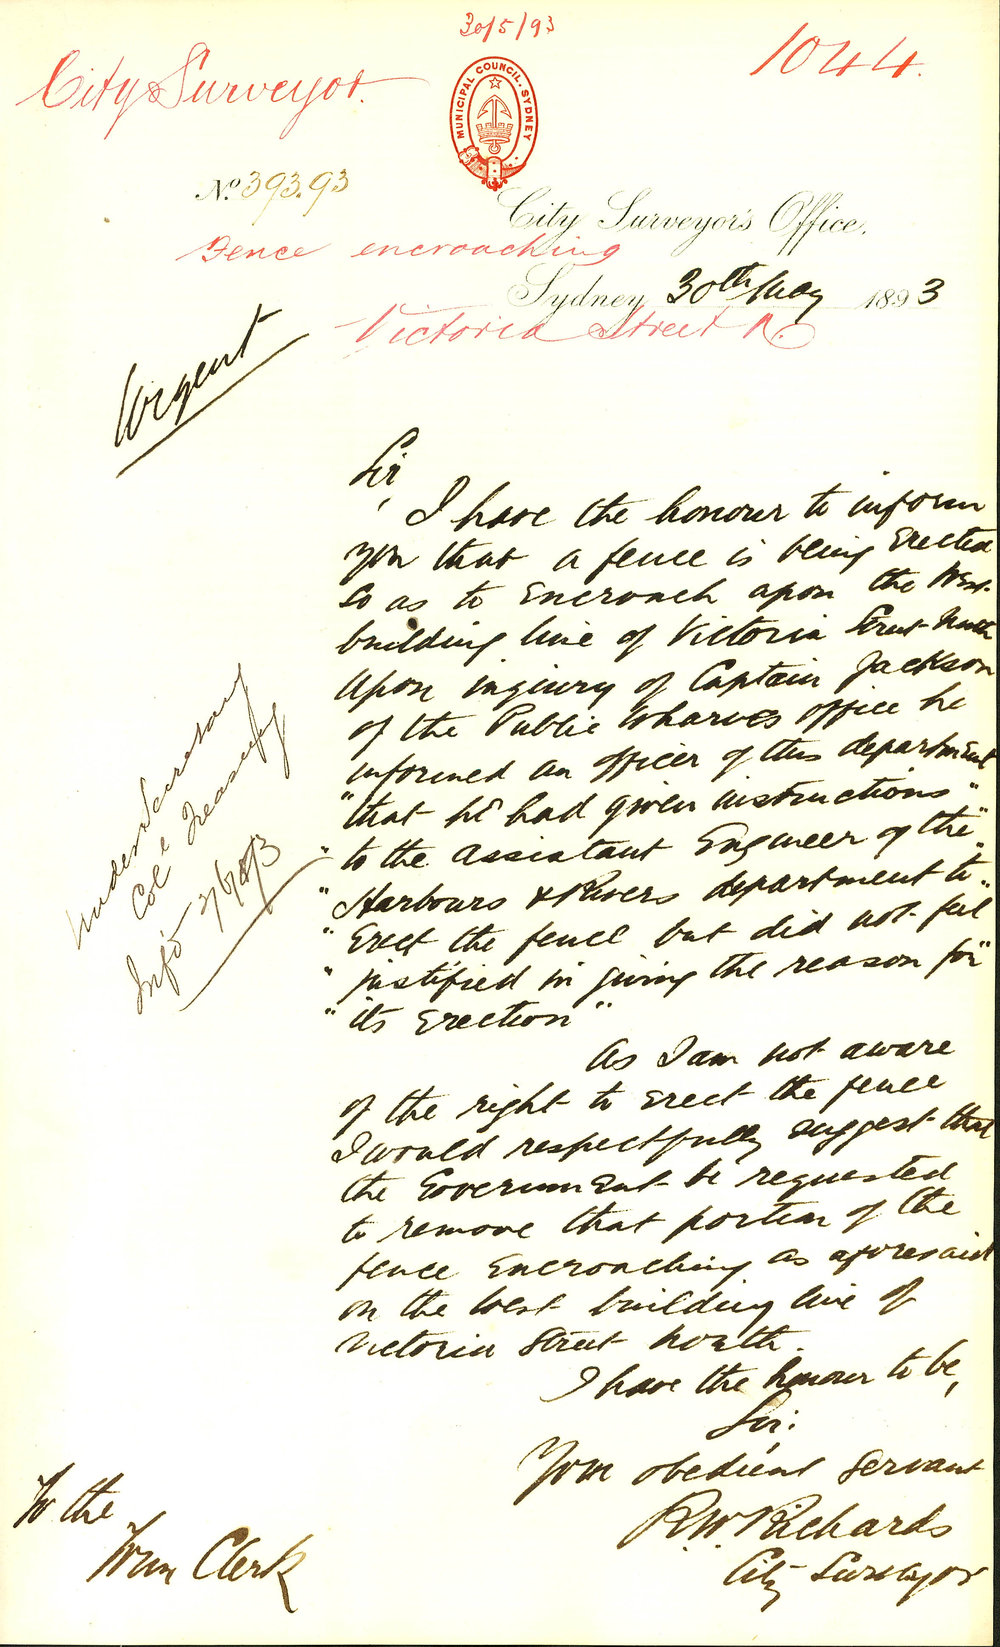 30/5/93
1044.
City Surveyor.
MUNICIPAL COUNCIL. SYDNEY
No. 393.93
City Surveyor's Office,
Fence encroaching
Sydney 30th May 1893
Victoria Street N.
Urgent
Sir,
I have the honour to inform
you that a fence is being Erected
so as to Encroach upon the West
building line of Victoria Street North
Upon inquiry of Captain Jackson
of the Public Wharves office he
informed an officer of this department
"that he had given instructions"
"to the Assistant Engineer of the"
"Harbours & Rivers department to"
"Erect the fence but did not feel
"justified in giving the reason for"
"its Erection"
As I am not aware
of the right to Erect the fence
I would respectfully suggest that
the Government be requested
to remove that portion of the
fence Encroaching as aforesaid
on the West building line of
Victoria Street North.
I have the honour to be,
Sir:
Your obedient Servant
R.W. Richards
City Surveyor
To the
Town Clerk
Under Secretary
Treasury